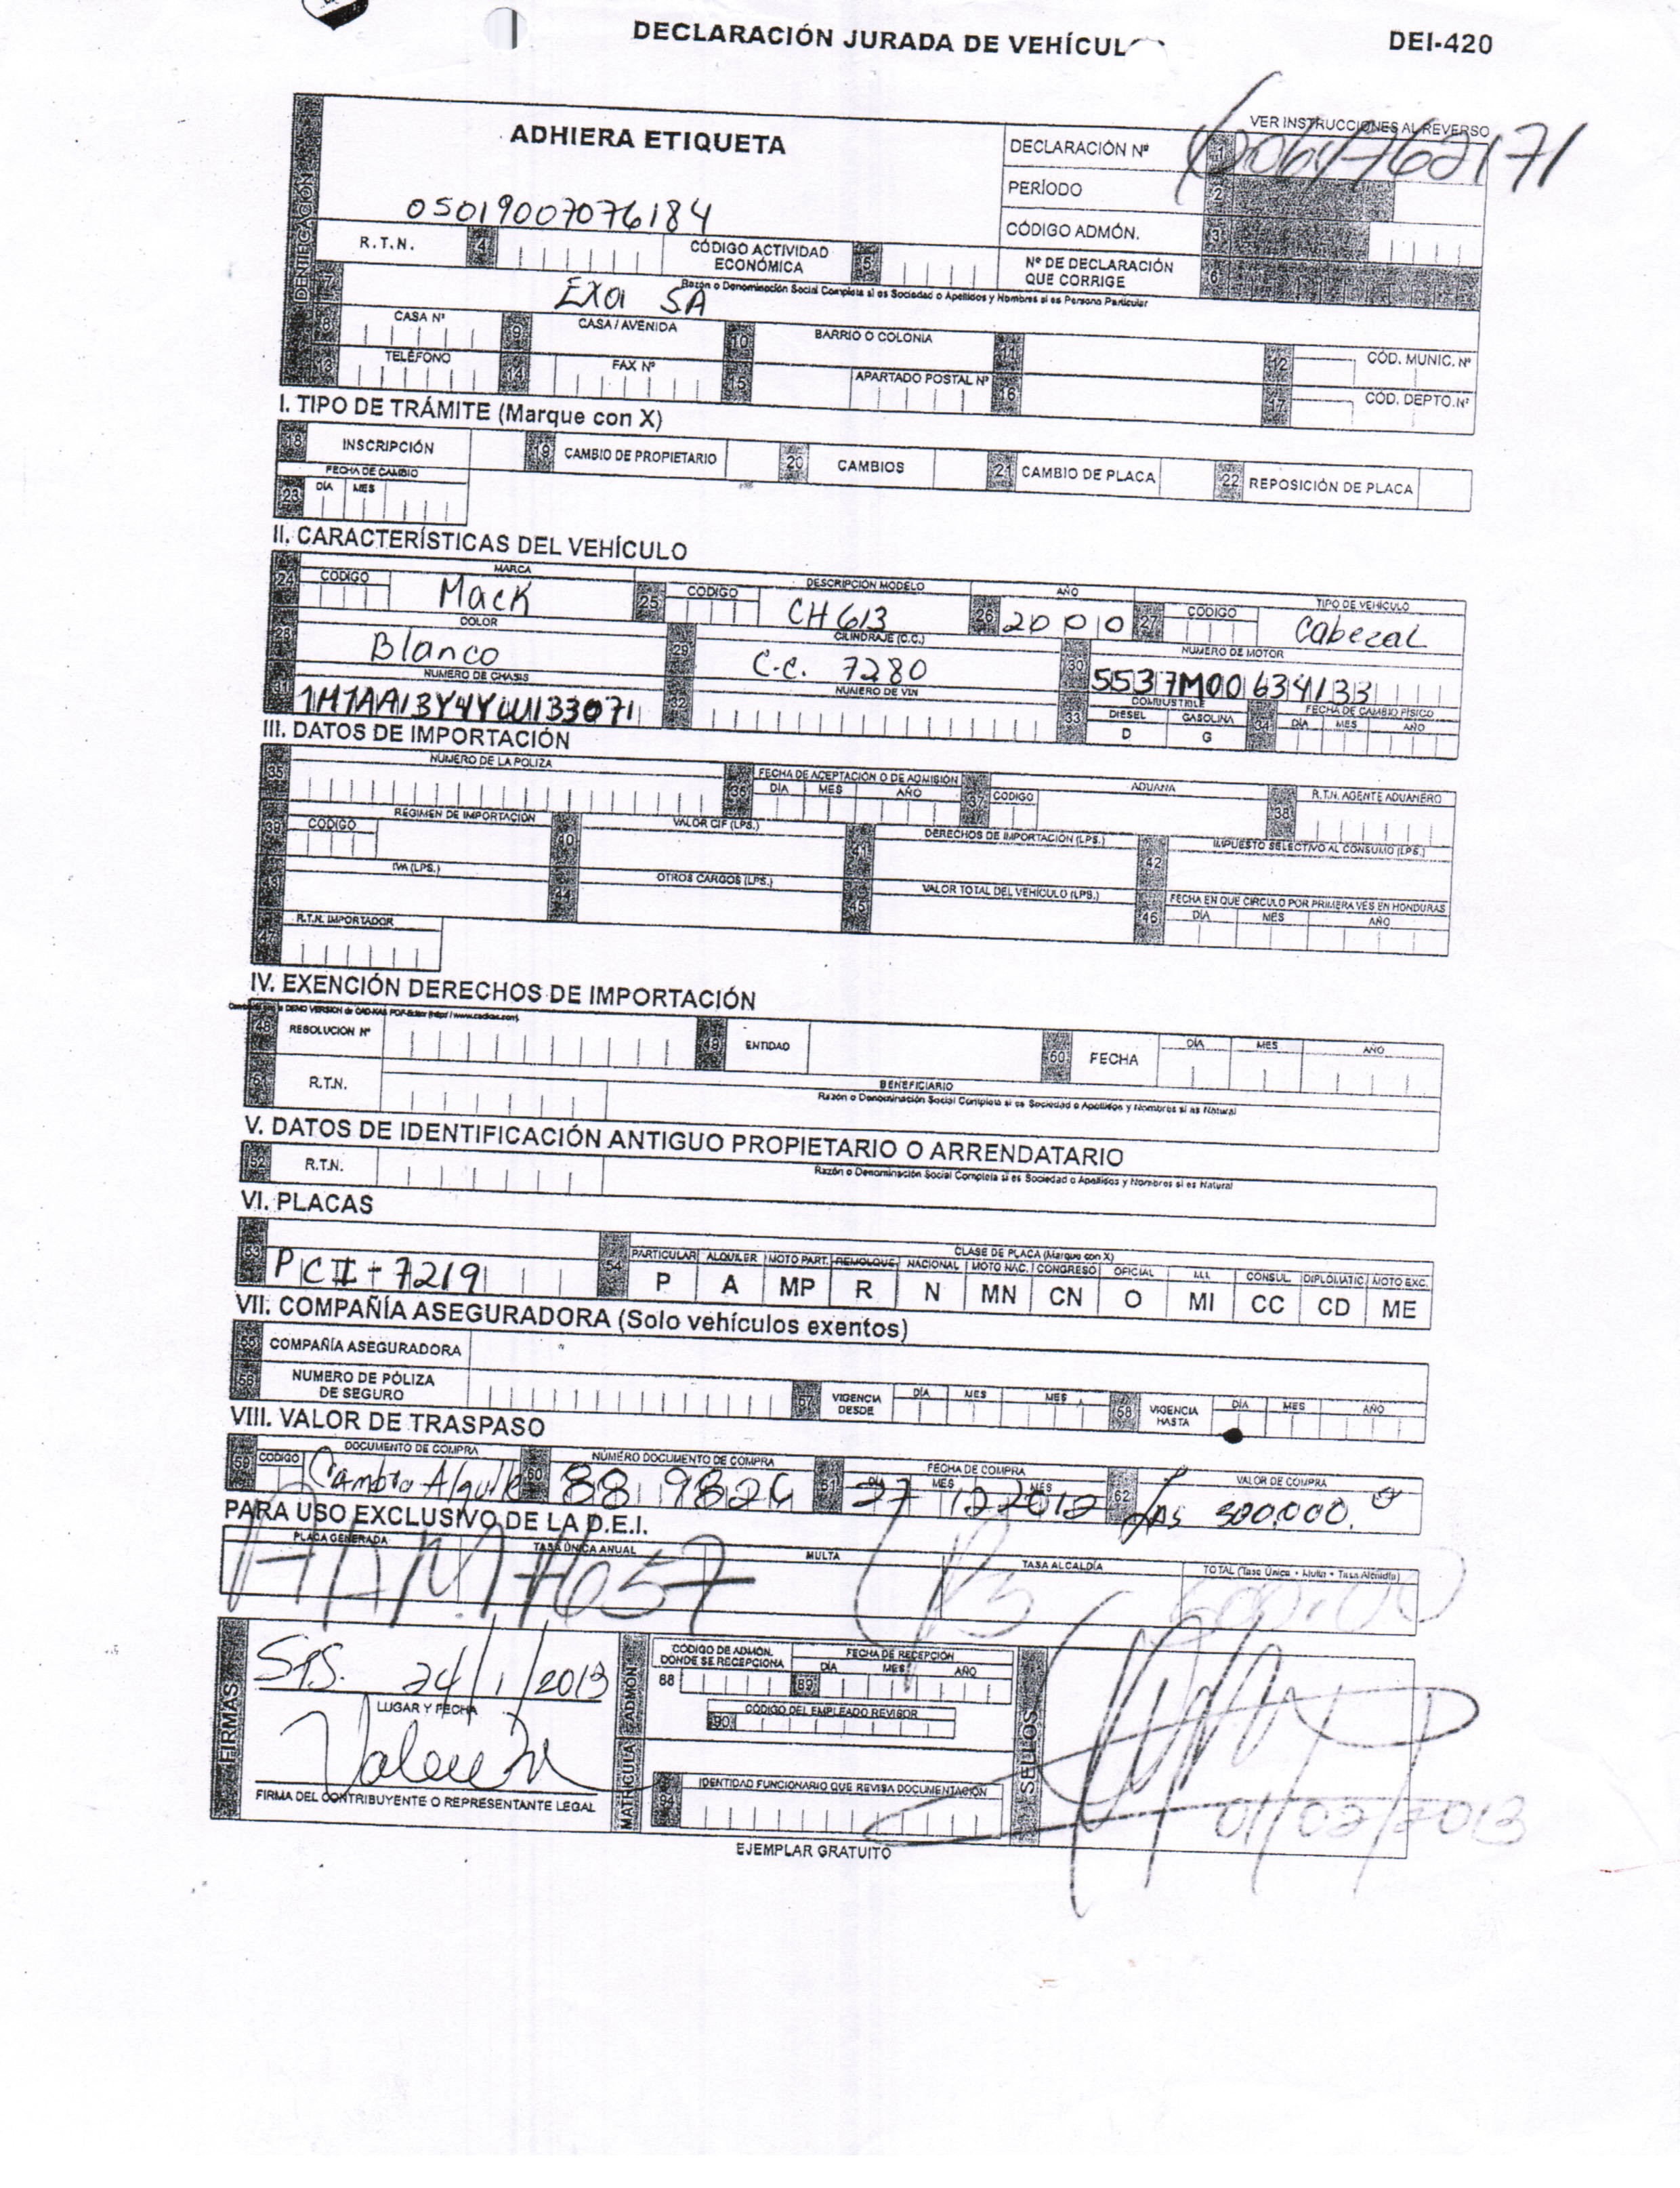 DECLARACIÓN JURADA DE VEHÍCUL
DEI-420
VER INSTRUCCIONES AL REVERSO
IDENTIFICACIÓN
ADHIERA ETIQUETA
05019007076184
DECLARACIÓN Nº 1
PERÍODO 2
CÓDIGO ADMÓN. 3
R.T.N. 4
CÓDIGO ACTIVIDAD ECONÓMICA 5
Nº DE DECLARACIÓN QUE CORRIGE 6
7 Razón o Denominación Social Completa si es Sociedad o Apellidos y Nombres si es Persona Particular
Exa SA
8 CASA Nº 9 CASA / AVENIDA 10 BARRIO O COLONIA 11 12 CÓD. MUNIC. Nº
13 TELÉFONO 14 FAX Nº 15 APARTADO POSTAL Nº 16 17 CÓD. DEPTO. Nº
I. TIPO DE TRÁMITE (Marque con X)
18 INSCRIPCIÓN 19 CAMBIO DE PROPIETARIO 20 CAMBIOS 21 CAMBIO DE PLACA 22 REPOSICIÓN DE PLACA
FECHA DE CAMBIO
23 DÍA MES
II. CARACTERÍSTICAS DEL VEHÍCULO
24 CODIGO MARCA Mack 25 CODIGO DESCRIPCIÓN MODELO CH 613 26 AÑO 2000 27 CODIGO TIPO DE VEHÍCULO Cabezal
28 DOLOR Blanco 29 CILINDRAJE (C.C.) C.C. 7280 30 NUMERO DE MOTOR 5537M00634133
31 NUMERO DE CHASIS 1M1AA13Y4YW133071 32 NUMERO DE VIN 33 COMBUSTIBLE DIESEL D GASOLINA G 34 FECHA DE CAMBIO FÍSICO DÍA MES AÑO
III. DATOS DE IMPORTACIÓN
35 NUMERO DE LA POLIZA 36 FECHA DE ACEPTACIÓN O DE ADMISIÓN DÍA MES AÑO 37 CODIGO ADUANA 38 R.T.N. AGENTE ADUANERO
39 CODIGO REGIMEN DE IMPORTACIÓN 40 VALOR CIF (LPS.) 41 DERECHOS DE IMPORTACIÓN (LPS.) 42 IMPUESTO SELECTIVO AL CONSUMO (LPS.)
43 IVA (LPS.) 44 OTROS CARGOS (LPS.) 45 VALOR TOTAL DEL VEHÍCULO (LPS.) 46 FECHA EN QUE CIRCULO POR PRIMERA VES EN HONDURAS DÍA MES AÑO
47 R.T.N. IMPORTADOR
IV. EXENCIÓN DERECHOS DE IMPORTACIÓN
48 RESOLUCIÓN Nº 49 ENTIDAD 50 FECHA DÍA MES AÑO
51 R.T.N. BENEFICIARIO
Razón o Denominación Social Completa si es Sociedad o Apellidos y Nombres si es Natural
V. DATOS DE IDENTIFICACIÓN ANTIGUO PROPIETARIO O ARRENDATARIO
52 R.T.N. Razón o Denominación Social Completa si es Sociedad o Apellidos y Nombres si es Natural
VI. PLACAS
53 54 CLASE DE PLACA (Marque con X)
PARTICULAR ALQUILER MOTO PART. REMOLQUE NACIONAL MOTO NAC. CONGRESO OFICIAL M.I. CONSUL. DIPLOMATIC. MOTO EXC.
7219 P A MP R N MN CN O MI CC CD ME
VII. COMPAÑÍA ASEGURADORA (Solo vehículos exentos)
55 COMPAÑÍA ASEGURADORA
56 NUMERO DE PÓLIZA DE SEGURO 57 VIGENCIA DESDE DÍA MES MES 58 VIGENCIA HASTA DÍA MES AÑO
VIII. VALOR DE TRASPASO
59 CODIGO DOCUMENTO DE COMPRA 60 NÚMERO DOCUMENTO DE COMPRA 61 FECHA DE COMPRA DÍA MES MES 62 VALOR DE COMPRA
Cambio 27 12 2012 300,000.
PARA USO EXCLUSIVO DE LA D.E.I.
PLACA GENERADA TASA ÚNICA ANUAL MULTA TASA ALCALDÍA TOTAL (Tasa Única + Multa + Tasa Alcaldía)
FIRMAS
S.P.S. 24/1/2013
LUGAR Y FECHA
FIRMA DEL CONTRIBUYENTE O REPRESENTANTE LEGAL
MATRICULA ADMÓN
CÓDIGO DE ADMÓN. DONDE SE RECEPCIONA 88
FECHA DE RECEPCIÓN 89 DÍA MES AÑO
90 CÓDIGO DEL EMPLEADO REVISOR
IDENTIDAD FUNCIONARIO QUE REVISA DOCUMENTACIÓN
SELLOS
01/02/2013
EJEMPLAR GRATUITO